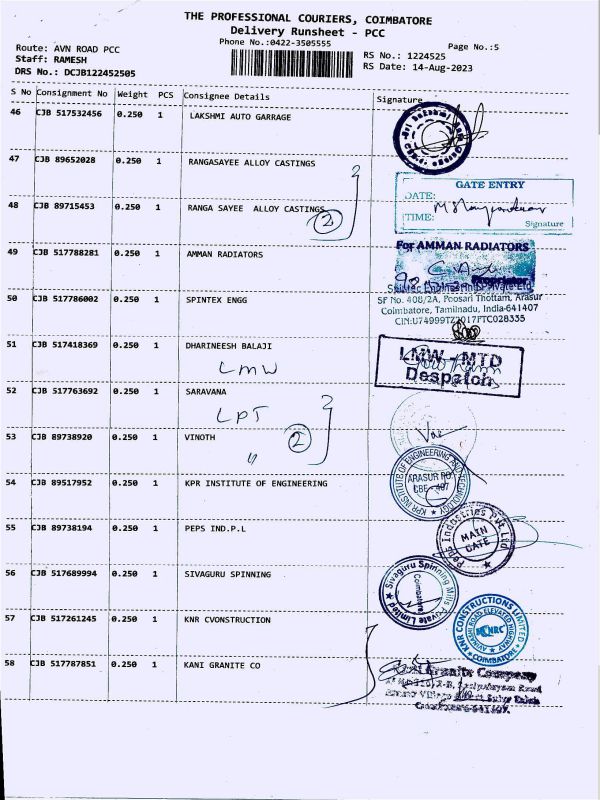 THE PROFESSIONAL COURIERS, COIMBATORE
Delivery Runsheet - PCC
Phone No.:0422-3505555
Page No.:5
Route: AVN ROAD PCC
Staff: RAMESH
DRS No.: DCJB122452505
RS No.: 1224525
RS Date: 14-Aug-2023
S No Consignment No Weight PCS Consignee Details Signature
46 CJB 517532456 0.250 1 LAKSHMI AUTO GARRAGE
47 CJB 89652028 0.250 1 RANGASAYEE ALLOY CASTINGS
GATE ENTRY
DATE:
TIME:
Signature
48 CJB 89715453 0.250 1 RANGA SAYEE ALLOY CASTINGS
2
49 CJB 517788281 0.250 1 AMMAN RADIATORS
For AMMAN RADIATORS
Proprietor
50 CJB 517786002 0.250 1 SPINTEX ENGG
Private Ltd
SF No. 408/2A, Poosari Thottam, Arasur
Coimbatore, Tamilnadu, India-641407
51 CJB 517418369 0.250 1 DHARINEESH BALAJI
LMW
LMW - MTD
Despatch
52 CJB 517763692 0.250 1 SARAVANA
LPT
53 CJB 89738920 0.250 1 VINOTH
"
2
54 CJB 89517952 0.250 1 KPR INSTITUTE OF ENGINEERING
KPR INSTITUTE OF ENGINEERING AND TECHNOLOGY
ARASUR PO
CBE - 407
55 CJB 89738194 0.250 1 PEPS IND.P.L
Peps Industries Pvt Ltd
MAIN
GATE
56 CJB 517689994 0.250 1 SIVAGURU SPINNING
Sivaguru Spinning Mills Private Limited
Coimbatore
57 CJB 517261245 0.250 1 KNR CVONSTRUCTION
KNR CONSTRUCTIONS LIMITED
KNRC
AVINASHI ROAD ELEVATED HIGHWAY
COIMBATORE
58 CJB 517787851 0.250 1 KANI GRANITE CO
Kani Granite Company